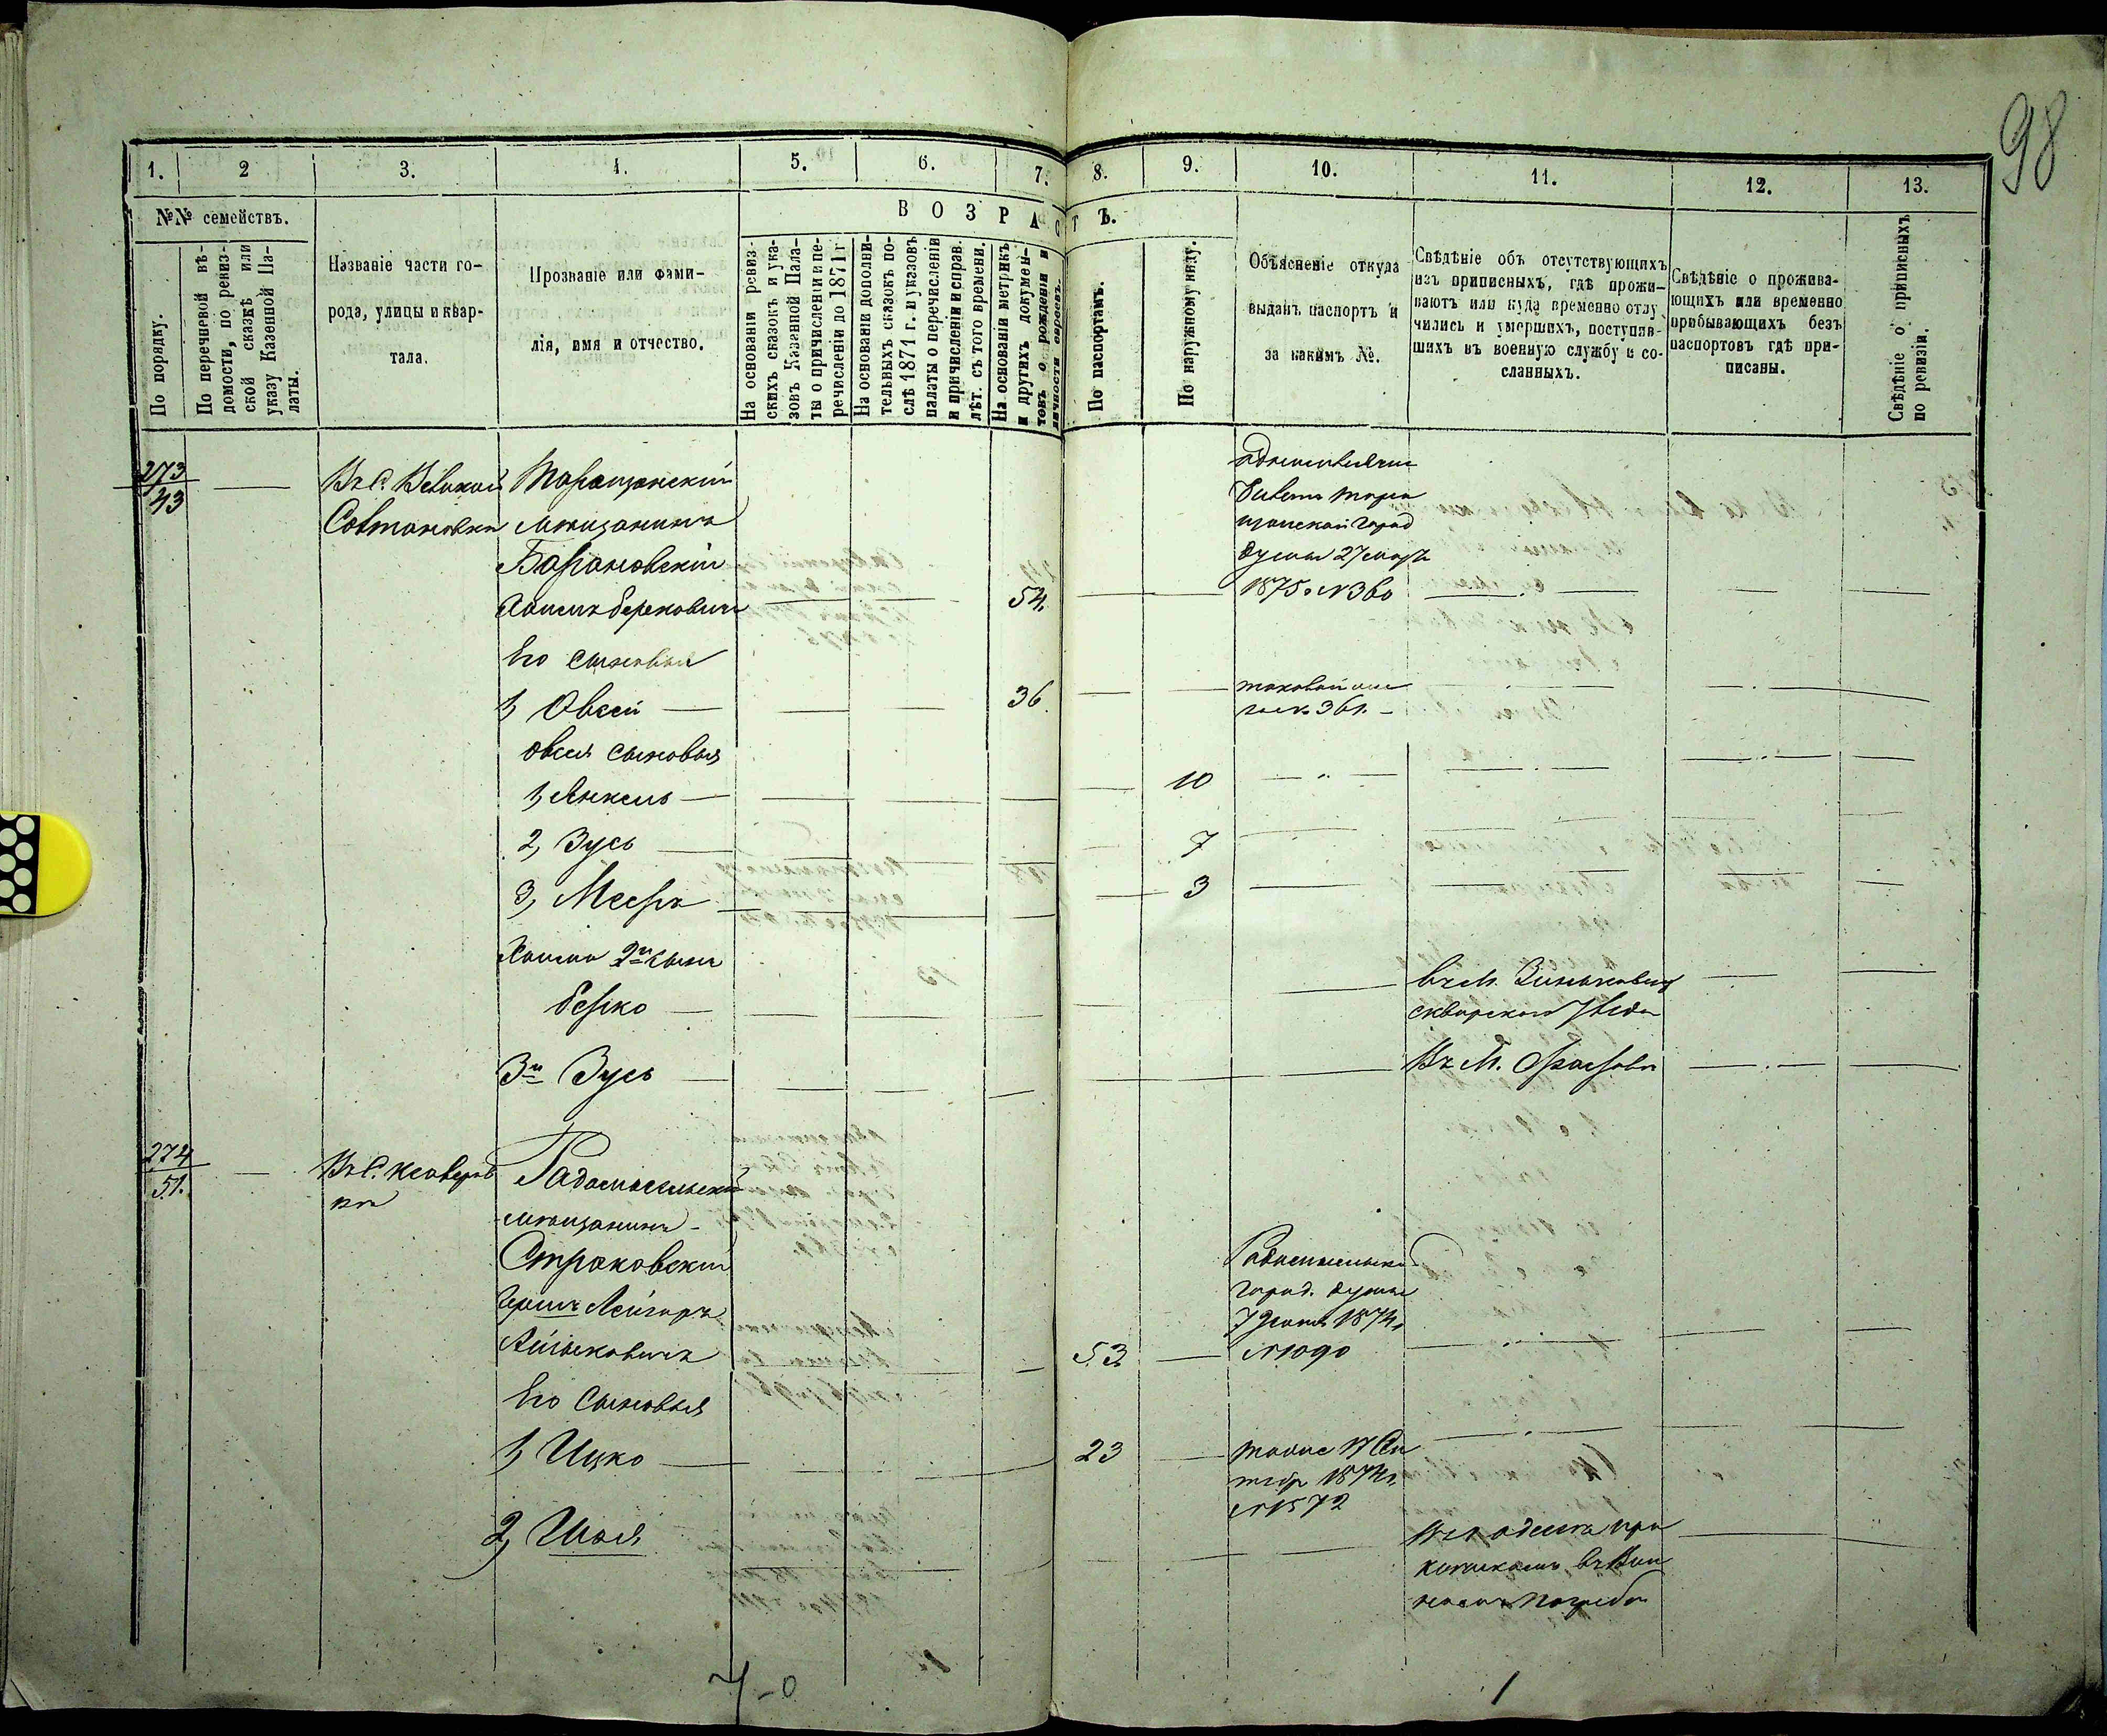 98
1. 2 3. 4. 5. 6. 7. 8. 9. 10. 11. 12. 13.
№№ семействъ.
ВОЗРАСТЪ.
По порядку.
По перечневой вѣ-
домости, по ревиз-
ской сказкѣ или
указу Казенной Па-
латы.
Названіе части го-
рода, улицы и квар-
тала.
Прозваніе или фами-
лія, имя и отчество.
На основаніи ревиз-
скихъ сказокъ и ука-
зовъ Казенной Пала-
ты о причисленіи и пе-
речисленіи до 1871 г.
На основаніи дополни-
тельныхъ сказокъ по-
слѣ 1871 г. и указовъ
палаты о перечисленіи
и причисленіи и справ.
лѣт. съ того времени.
На основаніи метрикъ
и другихъ докумен-
товъ о рожденіи и
личности евреевъ.
По паспортамъ.
По наружному виду.
Объясненіе откуда
выданъ паспортъ и
за какимъ №.
Свѣдѣніе объ отсутствующихъ
изъ приписныхъ, гдѣ прожи-
ваютъ или куда временно отлу
чились и умершихъ, поступив-
шихъ въ военную службу и со-
сланныхъ.
Свѣдѣніе о прожива-
ющихъ или временно
прибывающихъ безъ
паспортовъ гдѣ при-
писаны.
Свѣдѣніе о приписныхъ
по ревизіи.
273
43
Въ С. Великой
Совтановки
Таращанскій
мѣщанинъ
Барановскій
Хаимъ Берковичъ
54.
билетъ Тара
щанской город
думы 27 мар
1875 г. № 360
Его сыновья
1, Овсей 36
таковой же
за № 361.
Овсея сыновья
1, Янкель 10
2, Зусь 7
3, Мееръ 3
Хаима 2й сынъ
Берко
въ М.
сквирскаго уѣзда
3й Зусь
Въ М.
274
51.
Въ С. Ксаверов
ки
Радомысльскій
мѣщанинъ
Страковский
Гершъ Лейзоръ
53
Радомысльской
город. думы
1874 г.
№ 1090
Его сыновья
1, Ицко 23
тоже 17 Сен
тябр 1874 г.
№ 1572
2, Шая
погреба
7-0
1